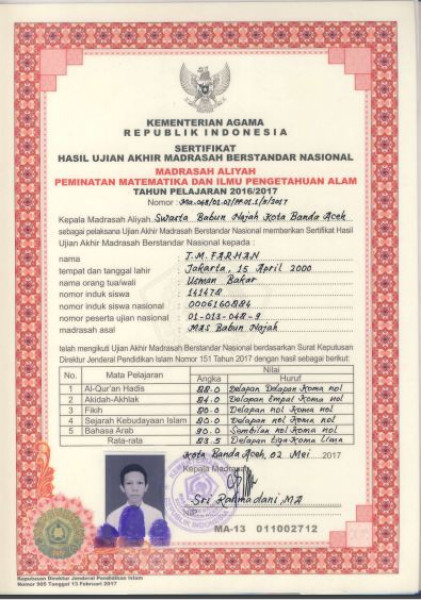 KEMENTERIAN AGAMA
REPUBLIK INDONESIA
SERTIFIKAT
HASIL UJIAN AKHIR MADRASAH BERSTANDAR NASIONAL
MADRASAH ALIYAH
PEMINATAN MATEMATIKA DAN ILMU PENGETAHUAN ALAM
TAHUN PELAJARAN 2016/2017
Nomor :
Kepala Madrasah Aliyah Swasta Babun Najah Kota Banda Aceh
sebagai pelaksana Ujian Akhir Madrasah Berstandar Nasional memberikan Sertifikat Hasil
Ujian Akhir Madrasah Berstandar Nasional kepada :
nama T.M. FARHAN
tempat dan tanggal lahir Jakarta, 15 April 2000
nama orang tua/wali Usman Bakar
nomor induk siswa 141478
nomor induk siswa nasional 0006160884
nomor peserta ujian nasional 01-013-048-9
madrasah asal MAS Babun Najah
telah mengikuti Ujian Akhir Madrasah Berstandar Nasional berdasarkan Surat Keputusan
Direktur Jenderal Pendidikan Islam Nomor 151 Tahun 2017 dengan hasil sebagai berikut:
No. Mata Pelajaran Nilai
Angka Huruf
1 Al-Qur'an Hadis 88.0 Delapan Delapan Koma nol
2 Akidah-Akhlak 84.0 Delapan Empat Koma nol
3 Fikih 80.0 Delapan nol Koma nol
4 Sejarah Kebudayaan Islam 80.0 Delapan nol Koma nol
5 Bahasa Arab 90.0 Sembilan nol Koma nol
Rata-rata 83.5 Delapan tiga Koma Lima
Kota Banda Aceh, 02 Mei 2017
Kepala Madrasah
Sri Rahmadani, MA
NIP
MA-13 011002712
Keputusan Direktur Jenderal Pendidikan Islam
Nomor 905 Tanggal 13 Februari 2017